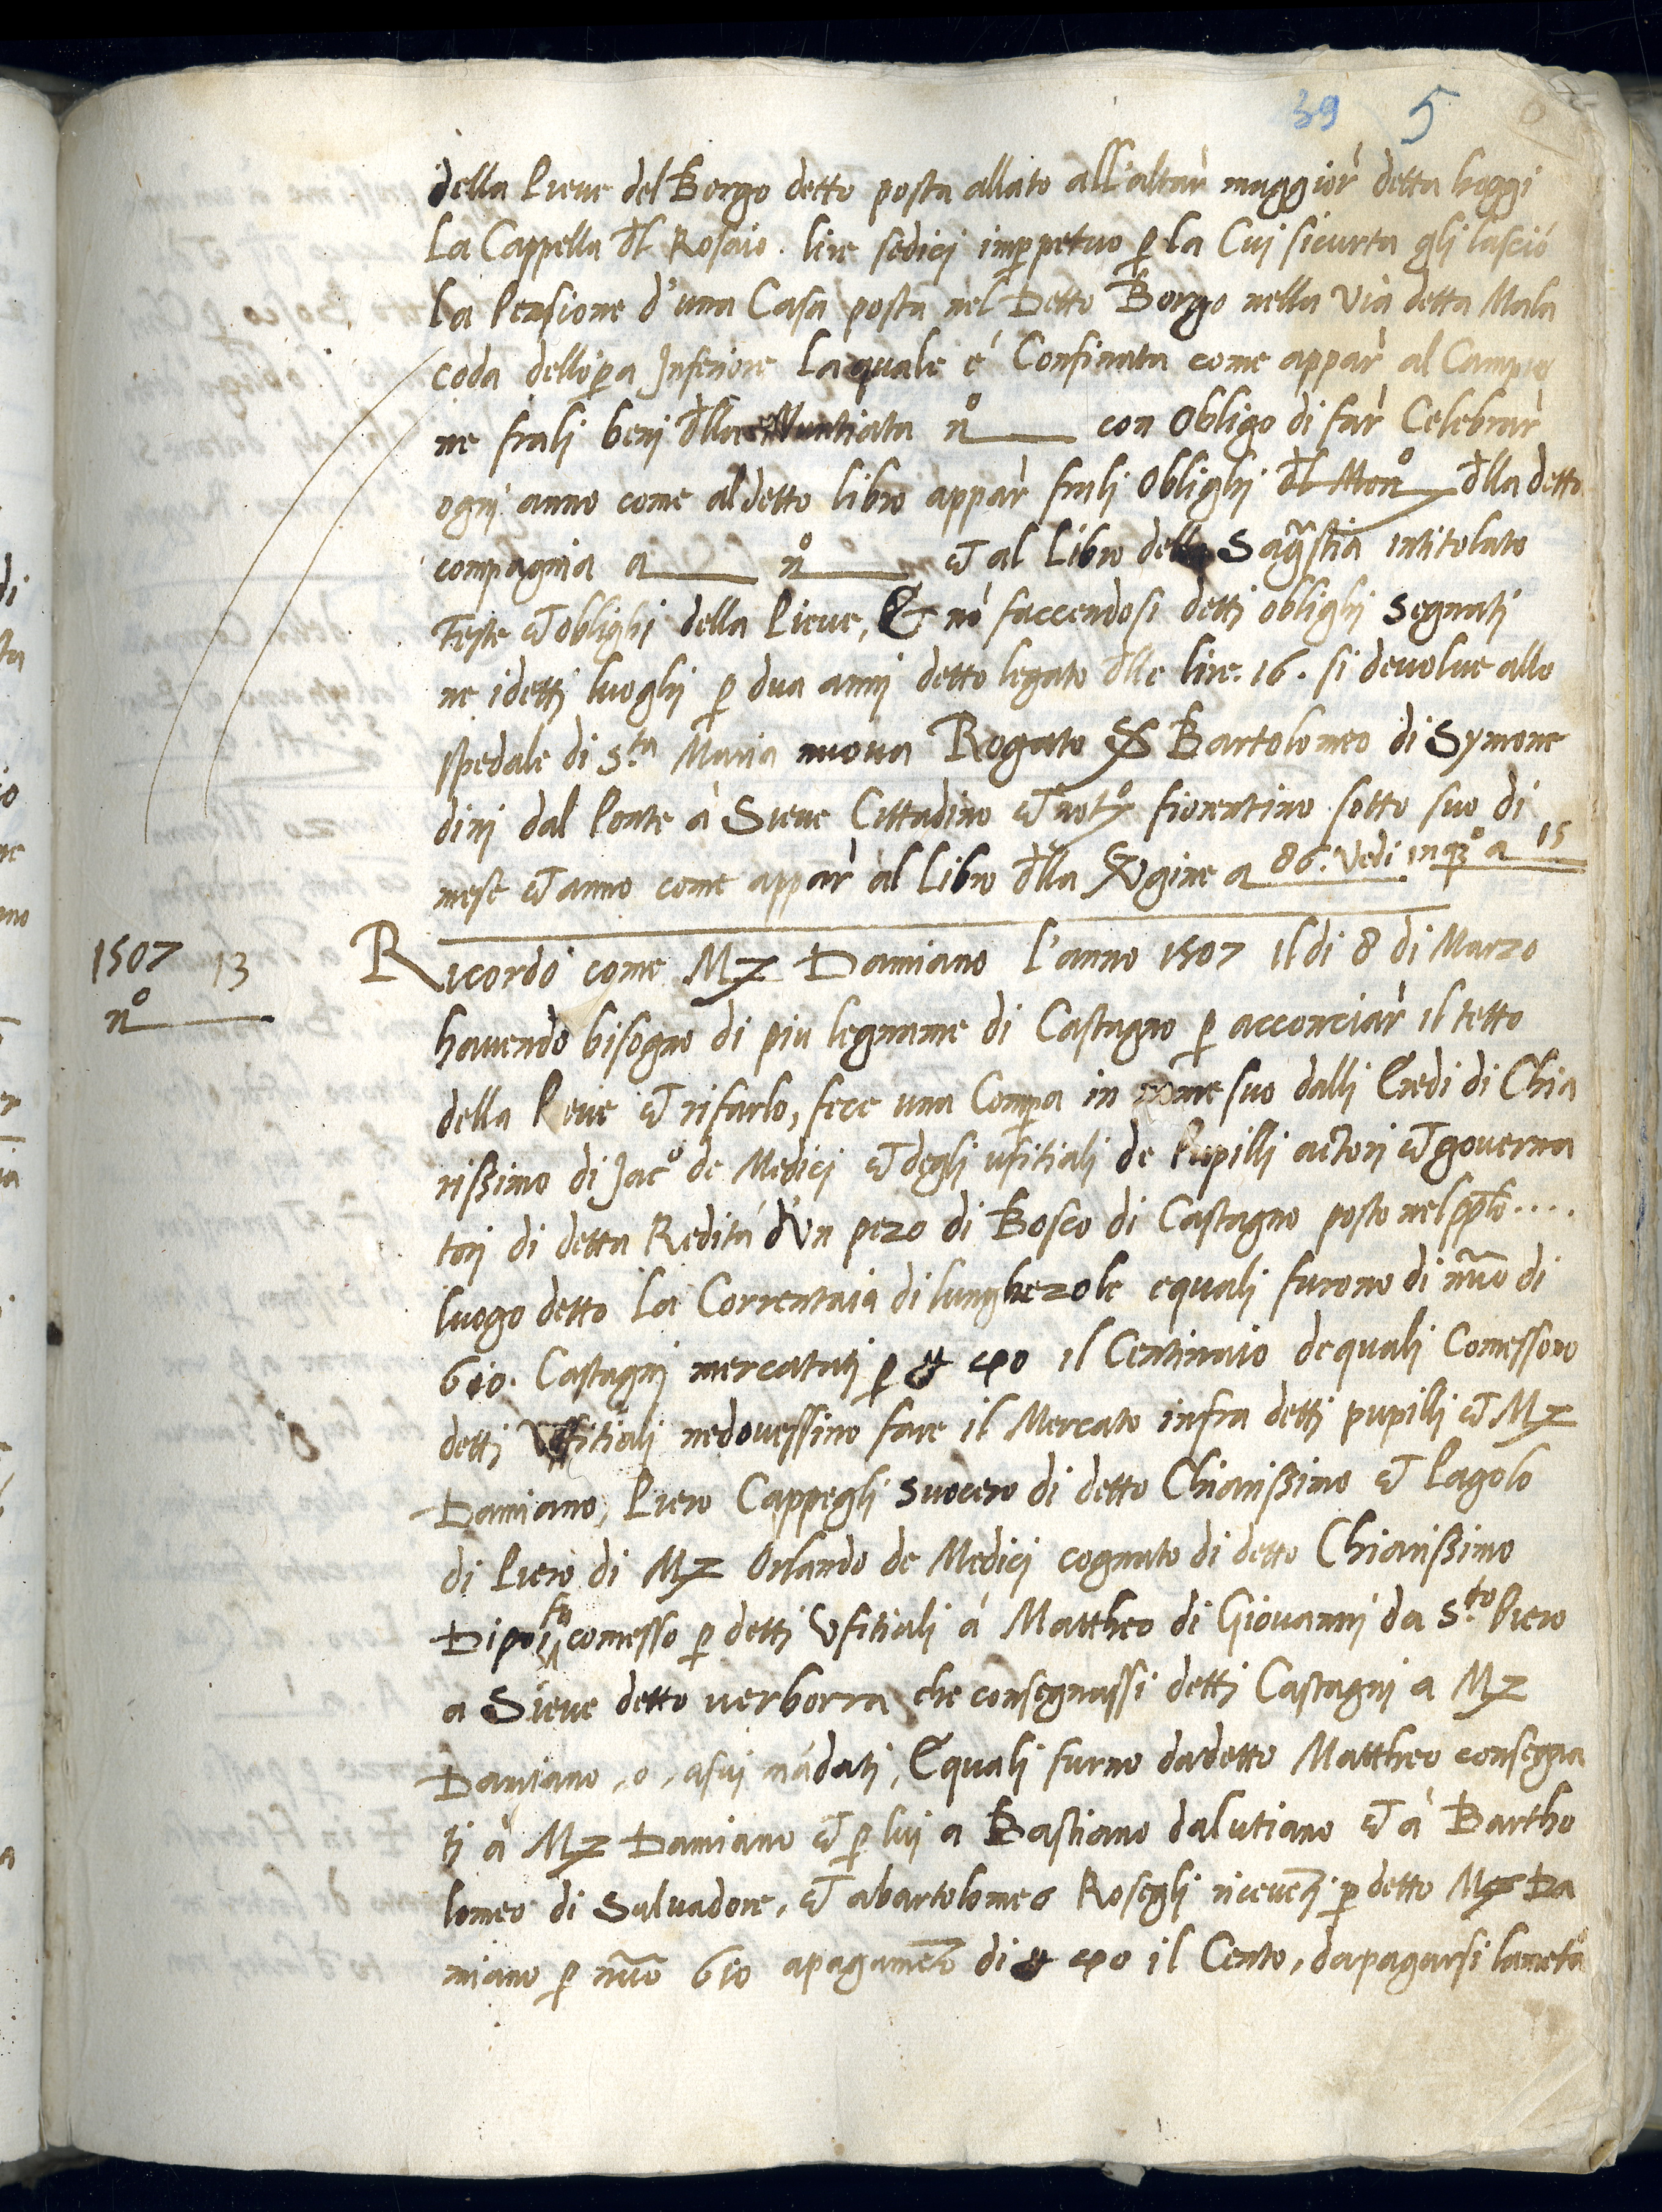 39 5
della Pieve del Borgo detto posta allato all'altar maggior detta hoggi
La Cappella dl Rosaio. lire sedici imperpetuo p la Cui sicurta gli lasciò
La Pensione d'una Casa posta nel Detto Borgo nella via detta Mala
coda dellopa Inferiore La quale é Confinata come appar al Campio
ne frali beni dlla Nuntiata n° con Obligo di far Celebrar
ogni anno come al detto libro appar frali Oblighi dl Mon° dlla detto
compagnia a n° et al Libro della Sagstia intitolato
Feste et oblighi della Pieve, & nò faccendosi detti oblighi segnati
ne idetti luoghi p dua anni detto legato dlle lire. 16. si devolve allo
spedale di S.ta Maria nuova Rogato S Bartolomeo di Symone
dini dal Ponte à Sieve Cittadino et not° fiorentino sotto suo di
mese et anno come appar al Libro dlla Vgine a 86. Vedi in q° a 15
1507 13
n°
Ricordo come Mz Damiano l'anno 1507 Il di 8 di Marzo
havendo bisogno di piu legname di Castagno p acconciar il tetto
della Pieve et rifarlo, fece una Compa in nome suo dalli Eredi di Chia
rissimo di Jac° de Medici et degli ufitiali de Pupilli actori et governa
tori di detta Redità d'Un pezo di Bosco di Castagno posto nel pplo....
luogo detto La Correntaia di lunghezole equali furono di nuo di
610. Castagni mercatati p il Centinaio dequali Comessono
detti Uffitiali nedovessino fare il Mercato infra detti pupilli et Mz
Damiano, Piero Cappegli suocero di detto Chiarissimo et Pagolo
di Piero di Mz Orlando de Medici cognato di detto Chiarissimo
Dipoi fu comesso p detti Ufitiali à Mattheo di Giovanni da S.to Piero
a Sieve detto verborra che consegnassi detti Castagni a Mz
Damiano, o, asui mādati, Equali furno dadetto Mattheo consegna
ti à Mz Damiano et p lui a Bastiano dalutiano et à Bartho
lomeo di Salvadore, et abartolomeo Rosegli riceveti p detto Mz Da
miano p nuo 610 apagameto di il Cento, dapagarsi lametà